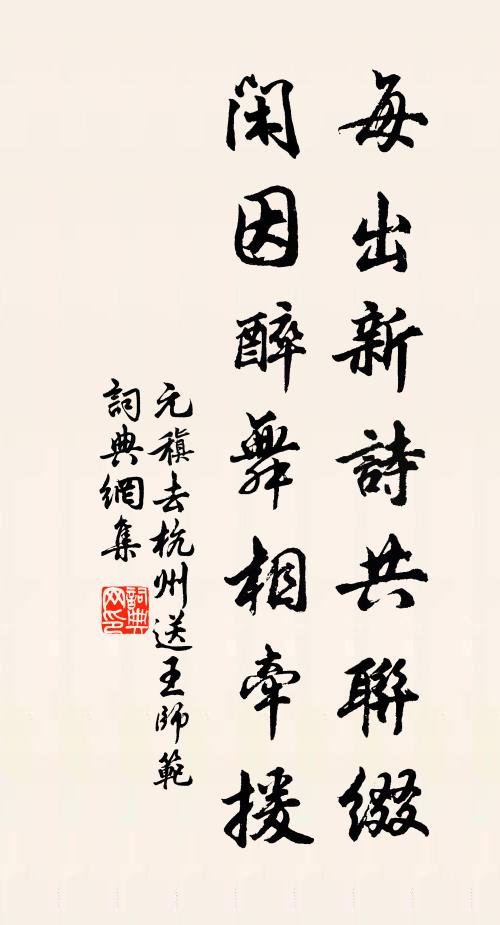 每出新詩共聯綴
閑因醉舞相牽援
元稹去杭州送王師範
詞典網集
詞典网印